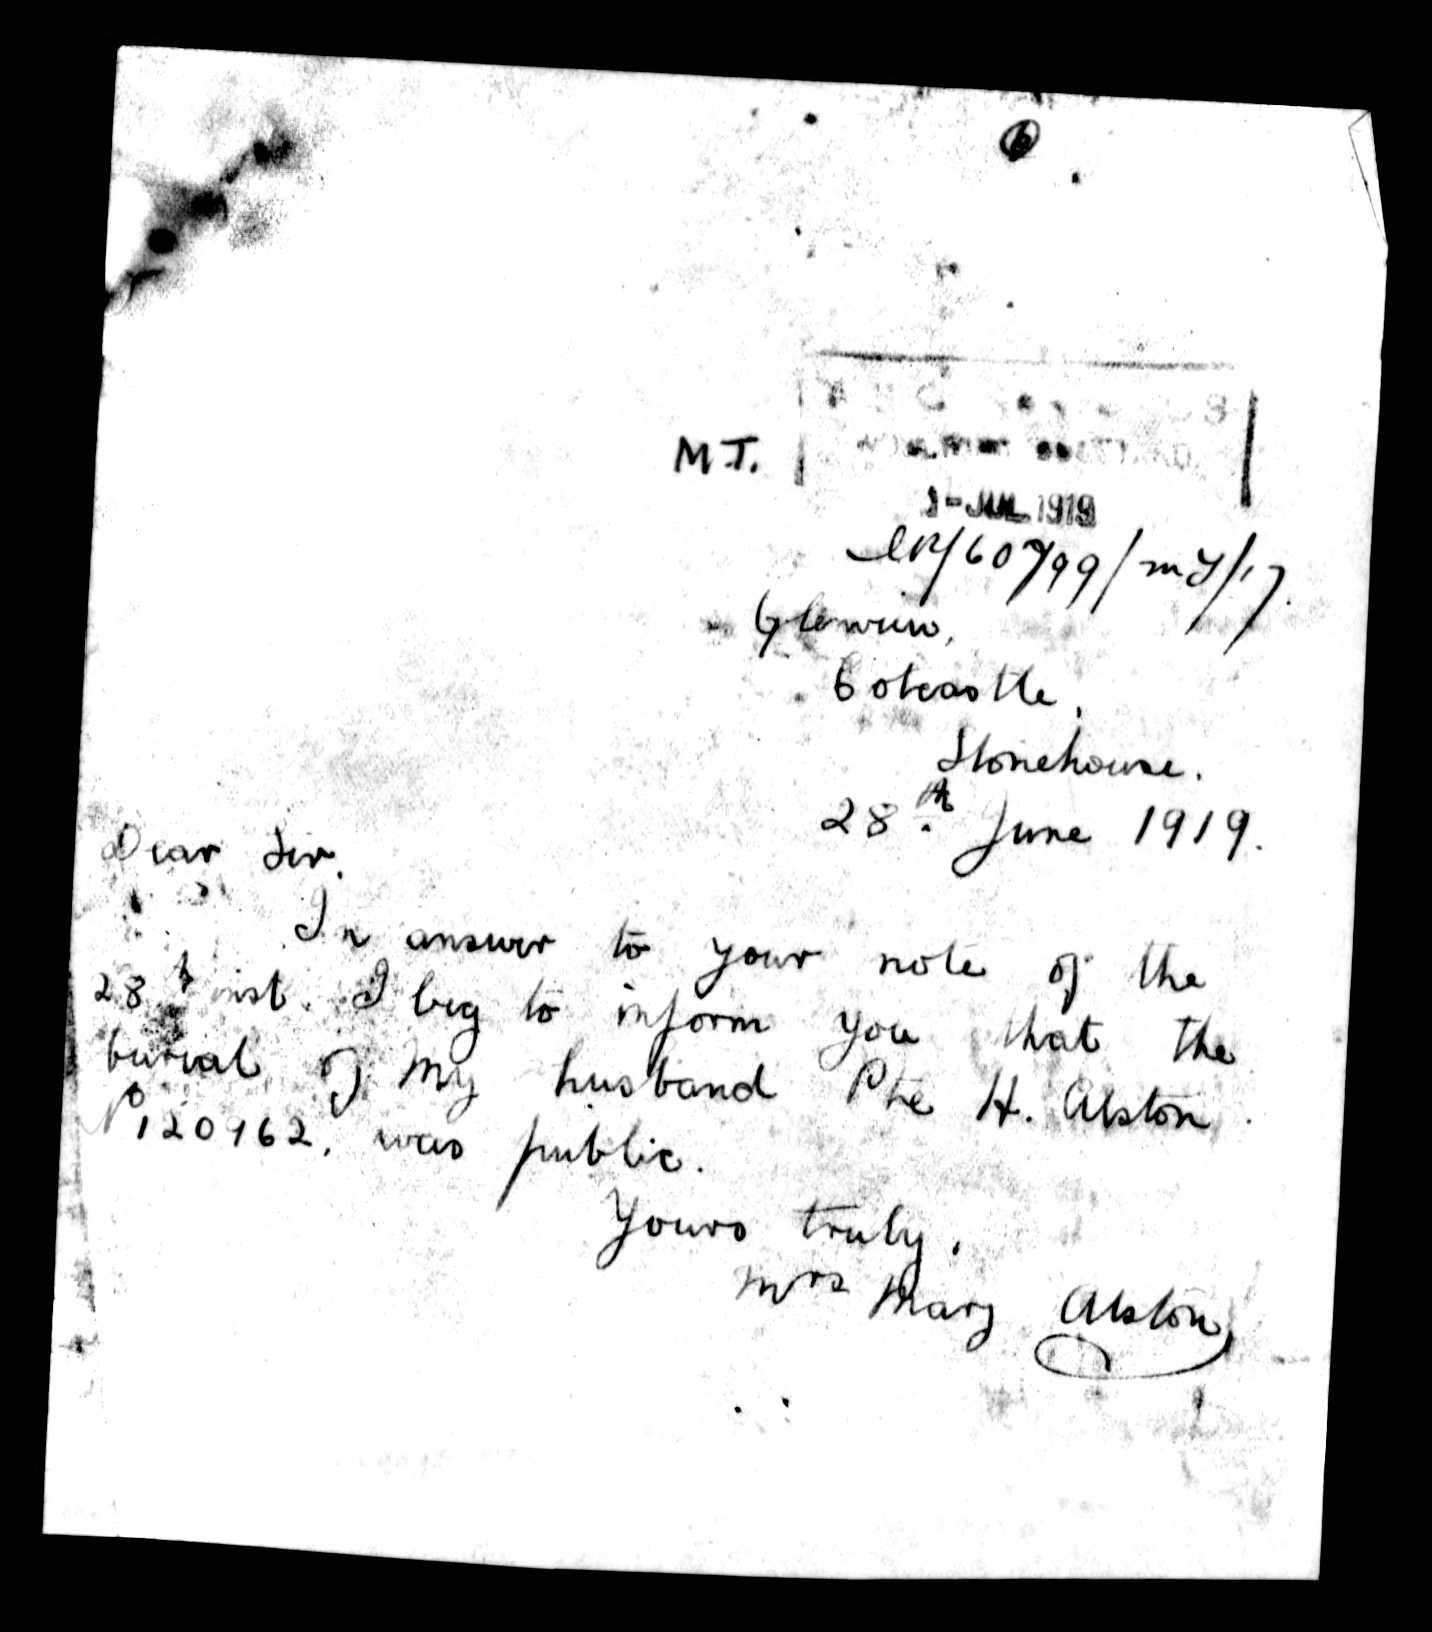 M.T.
1-JUL 1919
Cotcastle,
Stonehouse.
28th June 1919.
Dear Sir.
In answer to your note of the
28th inst. I beg to inform you that the
burial of My husband Pte H. Alston.
No 120962, was public.
Yours truly,
Mrs Mary Alston